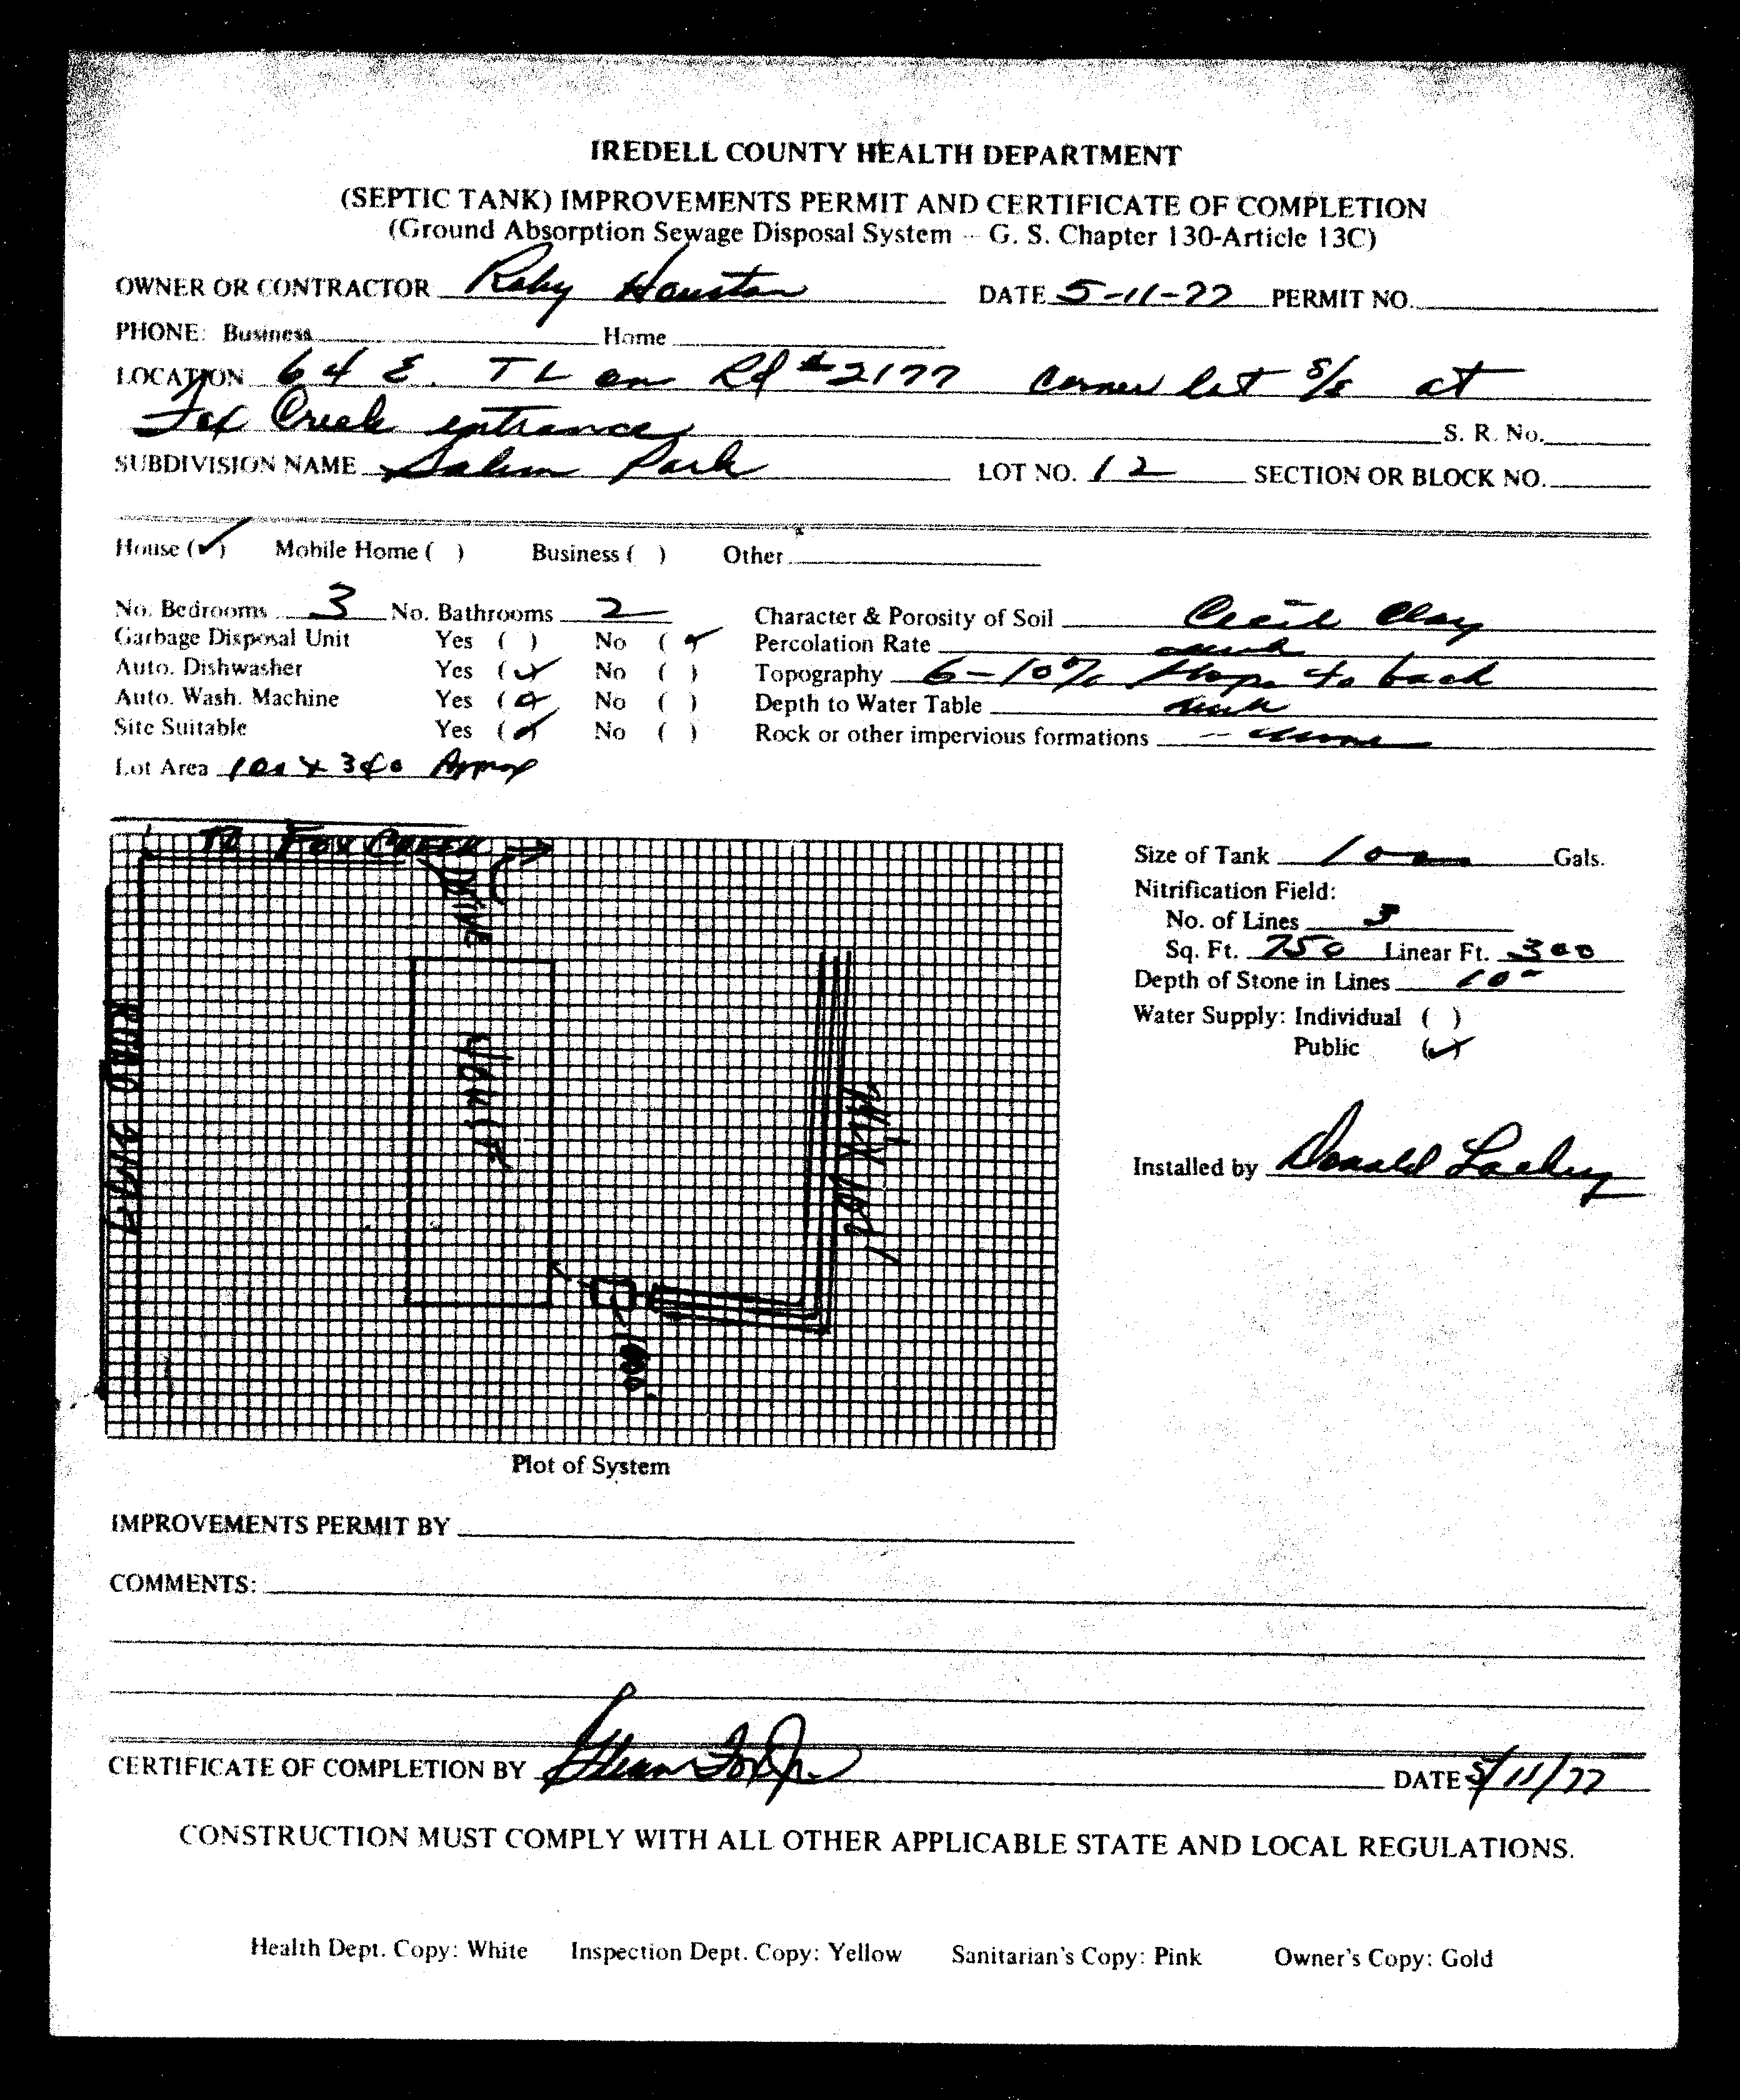 IREDELL COUNTY HEALTH DEPARTMENT
(SEPTIC TANK) IMPROVEMENTS PERMIT AND CERTIFICATE OF COMPLETION
(Ground Absorption Sewage Disposal System - G. S. Chapter 130-Article 13C)
OWNER OR CONTRACTOR Raby Houston DATE 5-11-77 PERMIT NO.
PHONE: Business Home
LOCATION 64 E. TL on Rd #2177 corner lot S/S at
Fox Creek entrance S. R. No.
SUBDIVISION NAME Salem Park LOT NO. 12 SECTION OR BLOCK NO.
House (✓) Mobile Home ( ) Business ( ) Other
No. Bedrooms 3 No. Bathrooms 2 Character & Porosity of Soil Cecil Clay
Garbage Disposal Unit Yes ( ) No (✓) Percolation Rate
Auto. Dishwasher Yes (✓) No ( ) Topography 6-10% slope to back
Auto. Wash. Machine Yes (✓) No ( ) Depth to Water Table
Site Suitable Yes (✓) No ( ) Rock or other impervious formations - none
Lot Area 100 x 340 Approx
TO FOX CREEK →
DRIVE
ROAD
HOUSE
BACK YARD
1000
Size of Tank 1000 Gals.
Nitrification Field:
No. of Lines 3
Sq. Ft. 750 Linear Ft. 300
Depth of Stone in Lines 10"
Water Supply: Individual ( )
Public (✓)
Installed by Donald Lackey
Plot of System
IMPROVEMENTS PERMIT BY
COMMENTS:
CERTIFICATE OF COMPLETION BY DATE 5/11/77
CONSTRUCTION MUST COMPLY WITH ALL OTHER APPLICABLE STATE AND LOCAL REGULATIONS.
Health Dept. Copy: White Inspection Dept. Copy: Yellow Sanitarian's Copy: Pink Owner's Copy: Gold